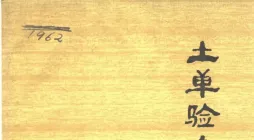 1962
土单验